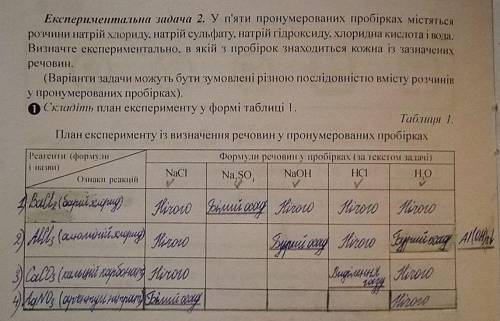 Експериментальна задача 2. У п'яти пронумерованих пробірках містяться
розчини натрій хлориду, натрій сульфату, натрій гідроксиду, хлоридна кислота і вода.
Визначте експериментально, в якій з пробірок знаходиться кожна із зазначених
речовин.
(Варіанти задачі можуть бути зумовлені різною послідовністю вмісту розчинів
у пронумерованих пробірках).
❶ Складіть план експерименту у формі таблиці 1.
Таблиця 1.
План експерименту із визначення речовин у пронумерованих пробірках
Реагенти (формули і назви) Ознаки реакцій
Формули речовин у пробірках (за текстом задачі)
NaCl Na₂SO₄ NaOH HCl H₂O
1) BaCl₂ (барій хлорид) Нічого Білий осад Нічого Нічого Нічого
2) AlCl₃ (алюміній хлорид) Нічого Бурий осад Нічого Бурий осад Al(OH)
3) CaCO₃ (кальцій карбонат) Нічого Виділення газу Нічого
4) AgNO₃ (аргентум нітрат) Білий осад Нічого